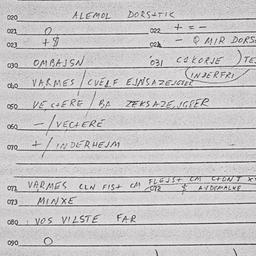 020 ALEMOL DORSTIK
021 O 022 + = -
023 + $ 024 - Q MIR DORS
030 OMBAJSN 031 COKORJE ) TE
(INJERFRI
040 VARMES / CVELF EJNSAZEJGEER
050 VECTERE / BA ZEKSAZEJGEER
060 - / VECTERE
070 + / INDERHEJM
071 VARMES CLN FIST CM FLEJST CM CTONT
072 $ AVDEMALKE
073 MINXE
080 VOS VILSTE FAR
090 O